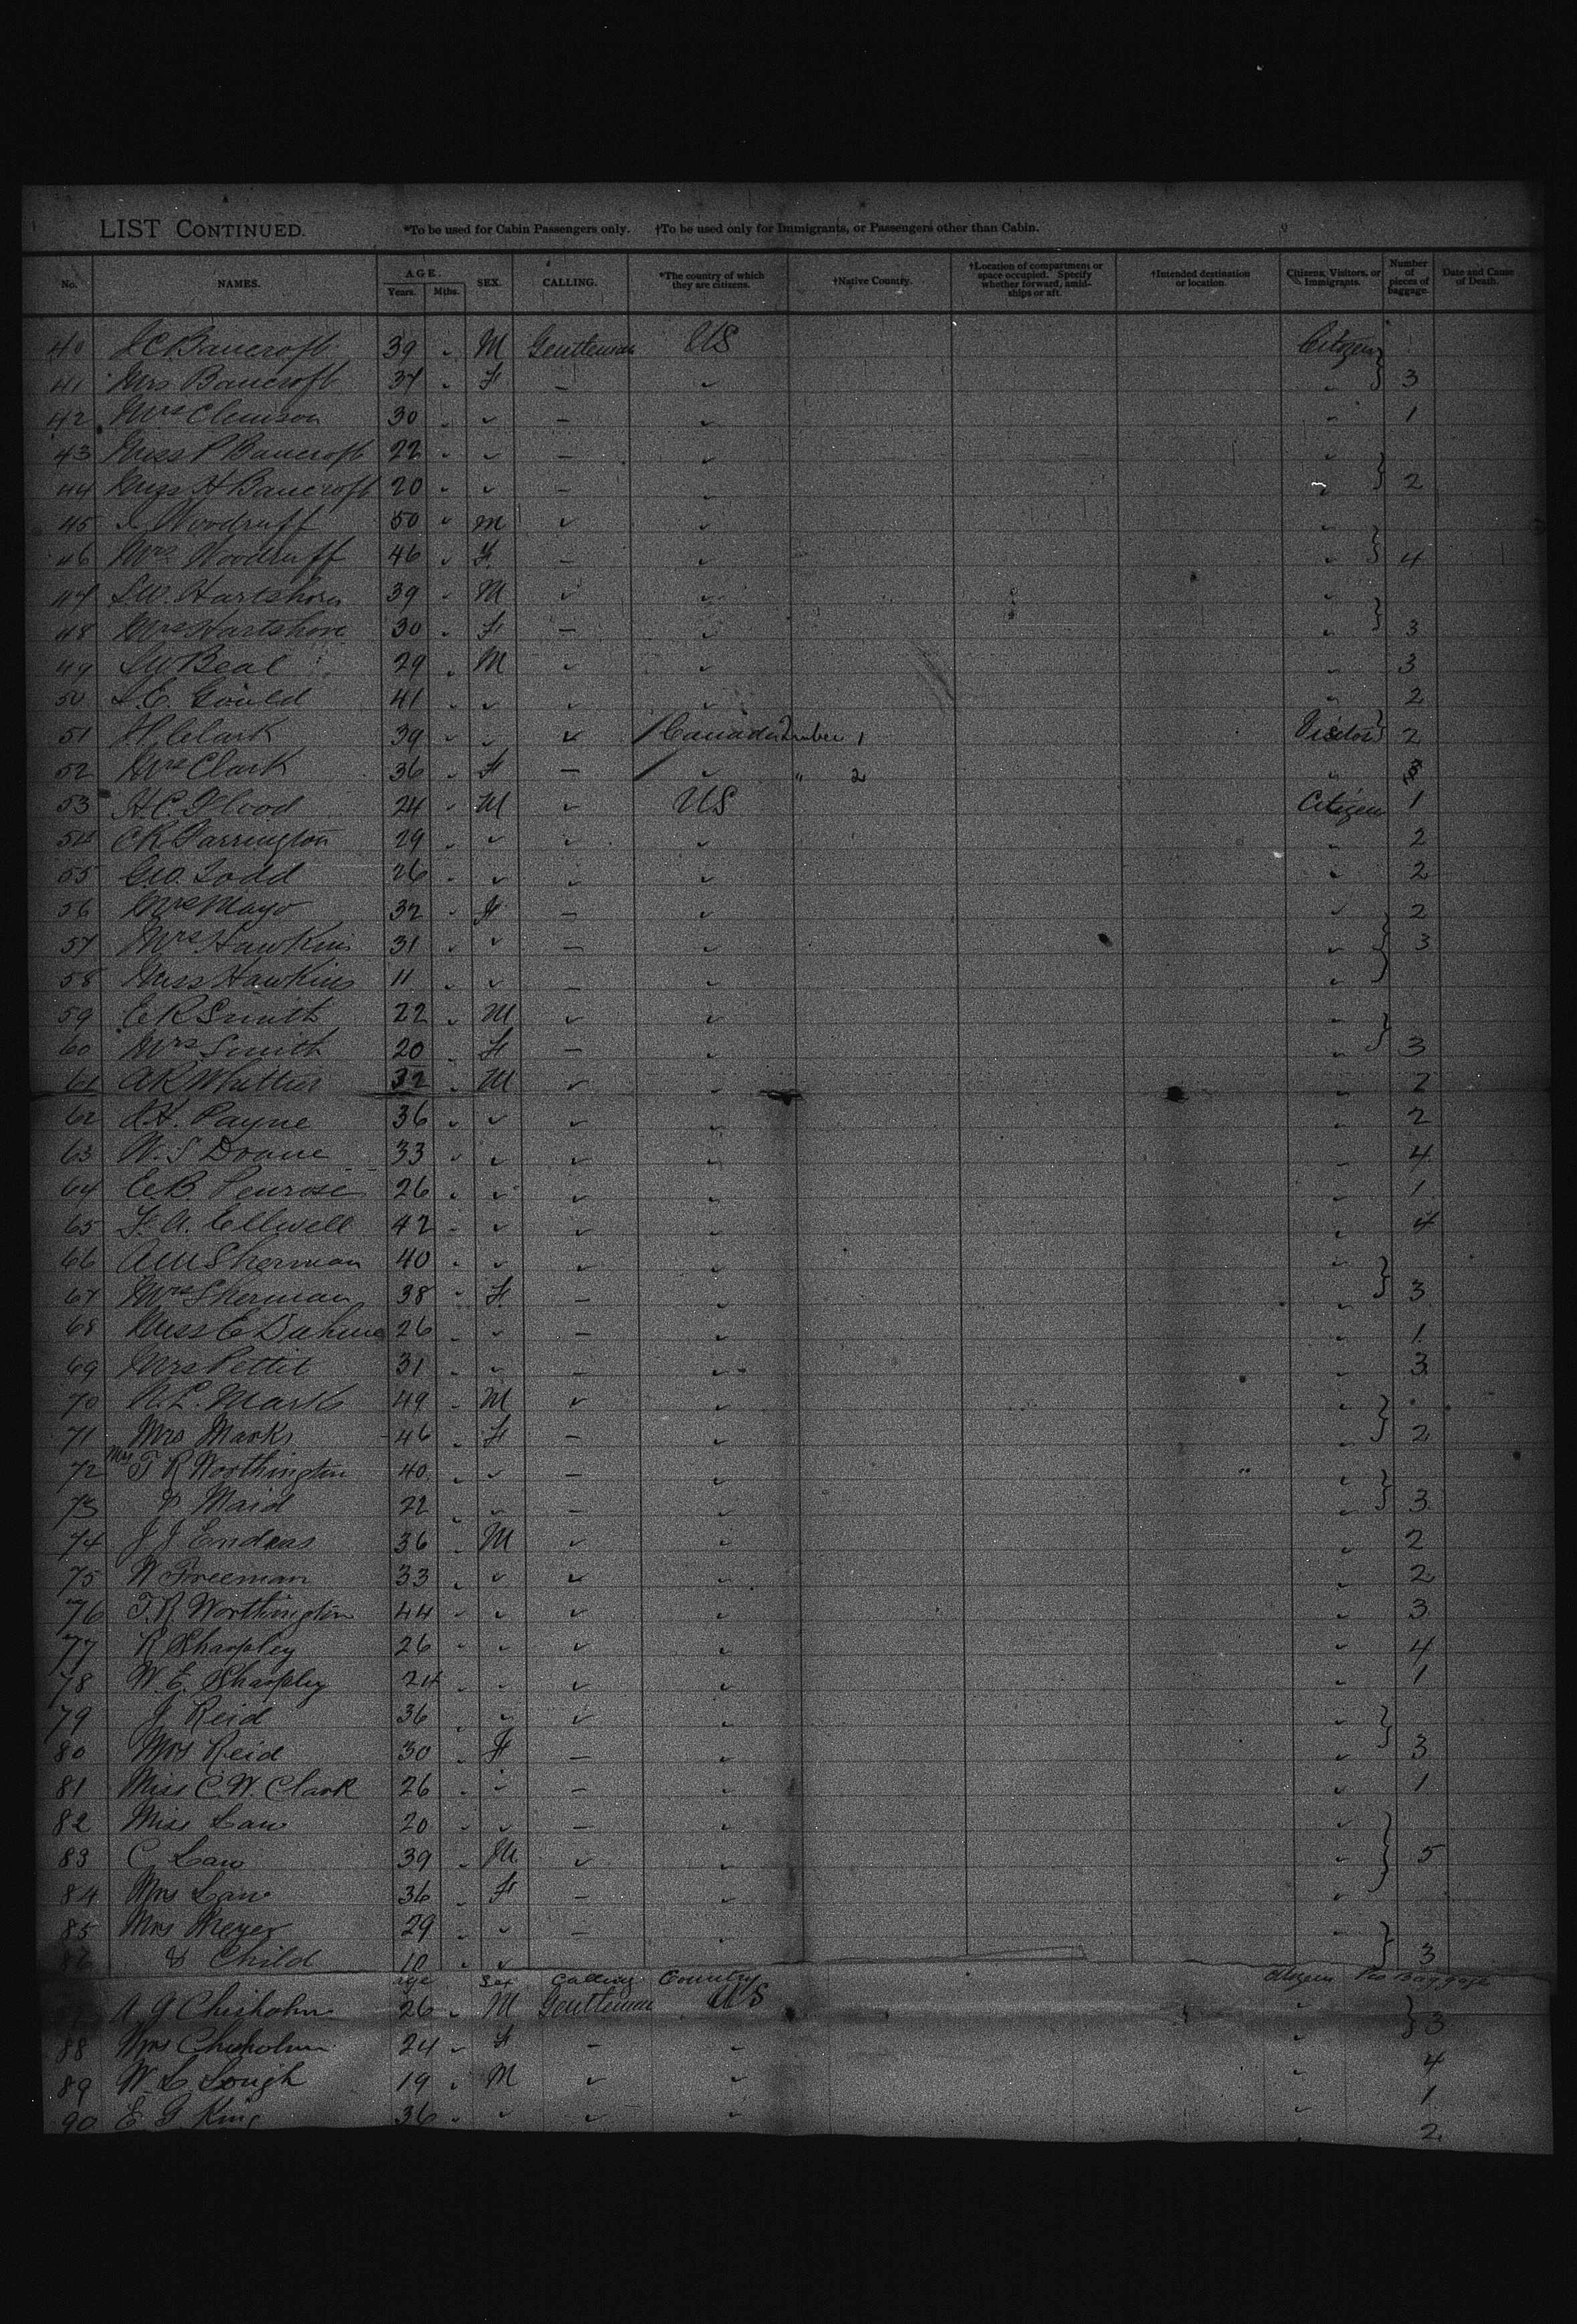 LIST CONTINUED. *To be used for Cabin Passengers only. †To be used only for Immigrants, or Passengers other than Cabin.
No. NAMES. AGE. Years. Mths. SEX. CALLING. *The country of which they are citizens. †Native Country. †Location of compartment or space occupied. Specify whether forward, amidships or aft. †Intended destination or location. Citizens, Visitors, or Immigrants. Number of pieces of baggage. Date and Cause of Death.
40 J C Bancroft 39 " M Gentleman US Citizen
41 Mrs Bancroft 37 " F — " " 3
42 Mrs Clemson 30 " " — " " 1
43 Miss P Bancroft 22 " " — " "
44 Miss H Bancroft 20 " " — " " 2
45 Woodruff 50 " M " " "
46 Mrs Woodruff 46 " F. — " " 4
47 S.W. Hartshorn 39 " M " " "
48 Mrs Hartshorn 30 " F — " " 3
49 S W Beal 29 " M " " " 3
50 L.E. Gould 41 " " " " " 2
51 H Clark 39 " " " Canada 1 Visitors 2
52 Mrs Clark 36 " F — " " 2 "
53 H.C. Flood 24 " M " US Citizen 1
54 C K Farrington 29 " " " " " 2
55 Geo. Todd 26 " " " " " 2
56 Mrs Mayo 32 " F — " " 2
57 Mrs Hawkins 31 " " — " " 3
58 Miss Hawkins 11 " " — " "
59 E R Smith 22 " M " " "
60 Mrs Smith 20 " F — " " 3
61 A R Whittier 32 " M " " " 2
62 Payne 36 " " " " " 2
63 W. S Doane 33 " " " " " 4
64 E B Penrose 26 " " " " " 1
65 F. A. Ellwell 42 " " " " " 4
66 A W Sherman 40 " " " " "
67 Mrs Sherman 38 " F. — " " 3
68 Miss E 26 " " — " " 1
69 Mrs Pettit 31 " " — " " 3
70 A. L. Marks 49 " M " " "
71 Mrs Marks 46 " F — " " 2
72 Mrs T R Worthington 40 " " — " "
73 & Maid 22 " " — " " 3
74 J J Endres 36 " M " " " 2
75 W Freeman 33 " " " " " 2
76 T. R Worthington 44 " " " " " 3
77 R Sharpley 26 " " " " " 4
78 W. E. Sharpley 24 " " " " " 1
79 J Reid 36 " " " " "
80 Mrs Reid 30 " F — " " 3
81 Miss C. W. Clark 26 " " — " " 1
82 Miss Law 20 " " — " "
83 C Law 39 " M " " " 5
84 Mrs Law 36 " F — " "
85 Mrs Meyer 29 " " — " "
86 & Child 10 " " 3
age Sex Calling Country Citizen Pcs Baggage
A G Chisholm 26 " M Gentleman US " 3
88 Mrs Chisholm 24 " F — " " 4
89 W L Lough 19 " M " " " 1
90 E G King 36 " " " " " 2